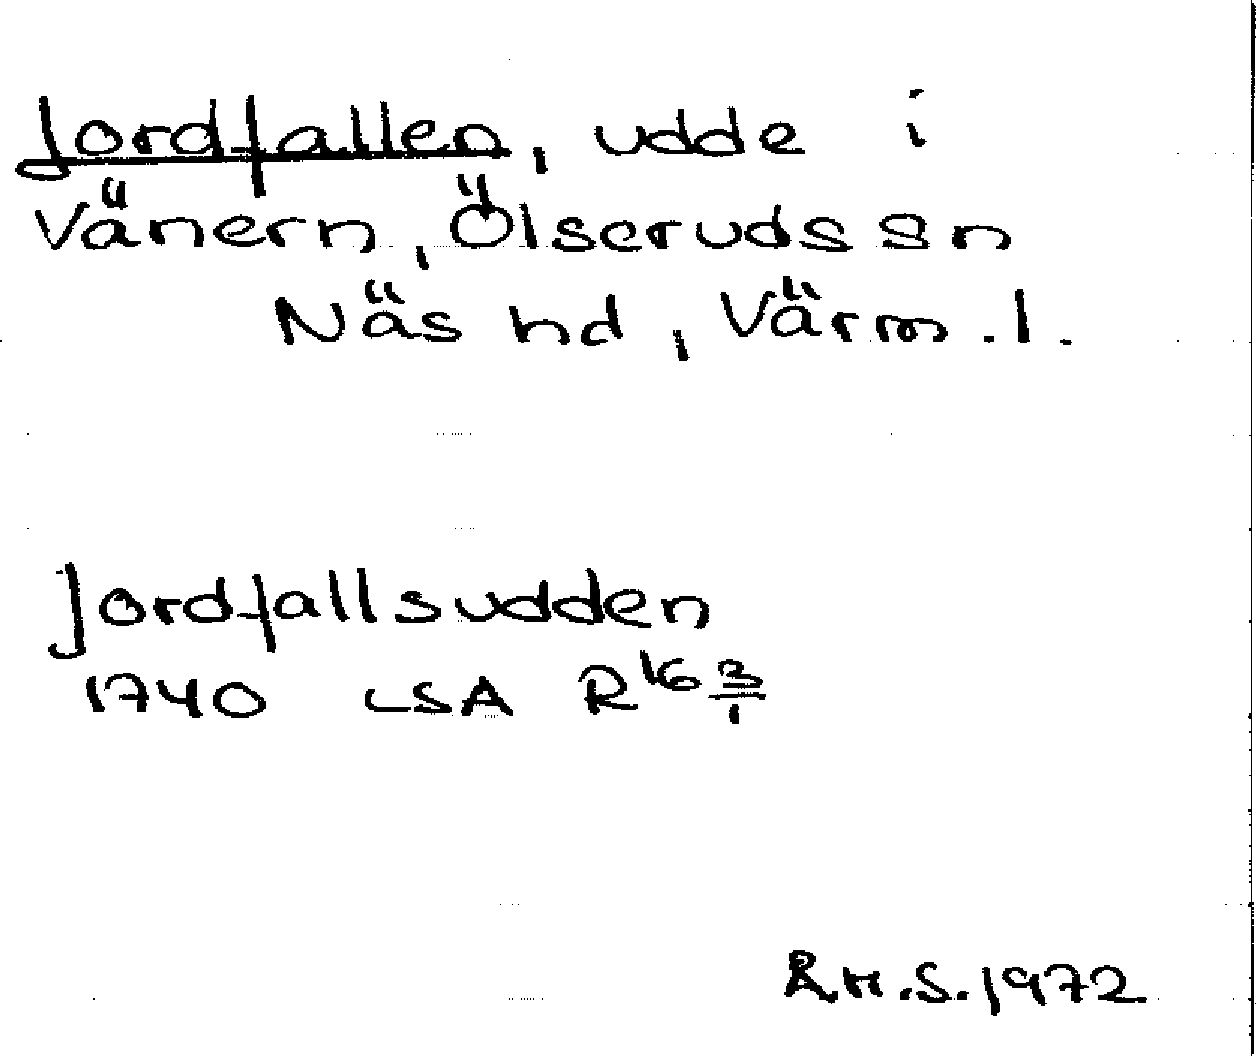 Jordfallen, udde i
Vänern, Ölseruds sn
Näs hd, Värml.
Jordfallsudden
1740 LSA R¹⁶ 3/1
R.H.S. 1972